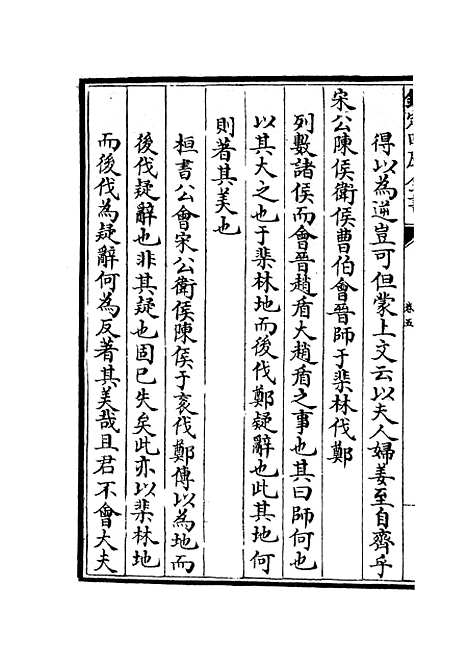 欽定四庫全書
卷五
得以為逆豈可但蒙上文云以夫人婦姜至自齊乎
宋公陳侯衛侯曹伯會晉師于棐林伐鄭
列數諸侯而會晉趙盾大趙盾之事也其曰師何也
以其大之也于棐林地而後伐鄭疑辭也此其地何
則著其美也
桓書公會宋公衛侯陳侯于袤伐鄭傳以為地而
後伐疑辭也非其疑也固已失矣此亦以棐林地
而後伐為疑辭何為反著其美哉且君不會大夫